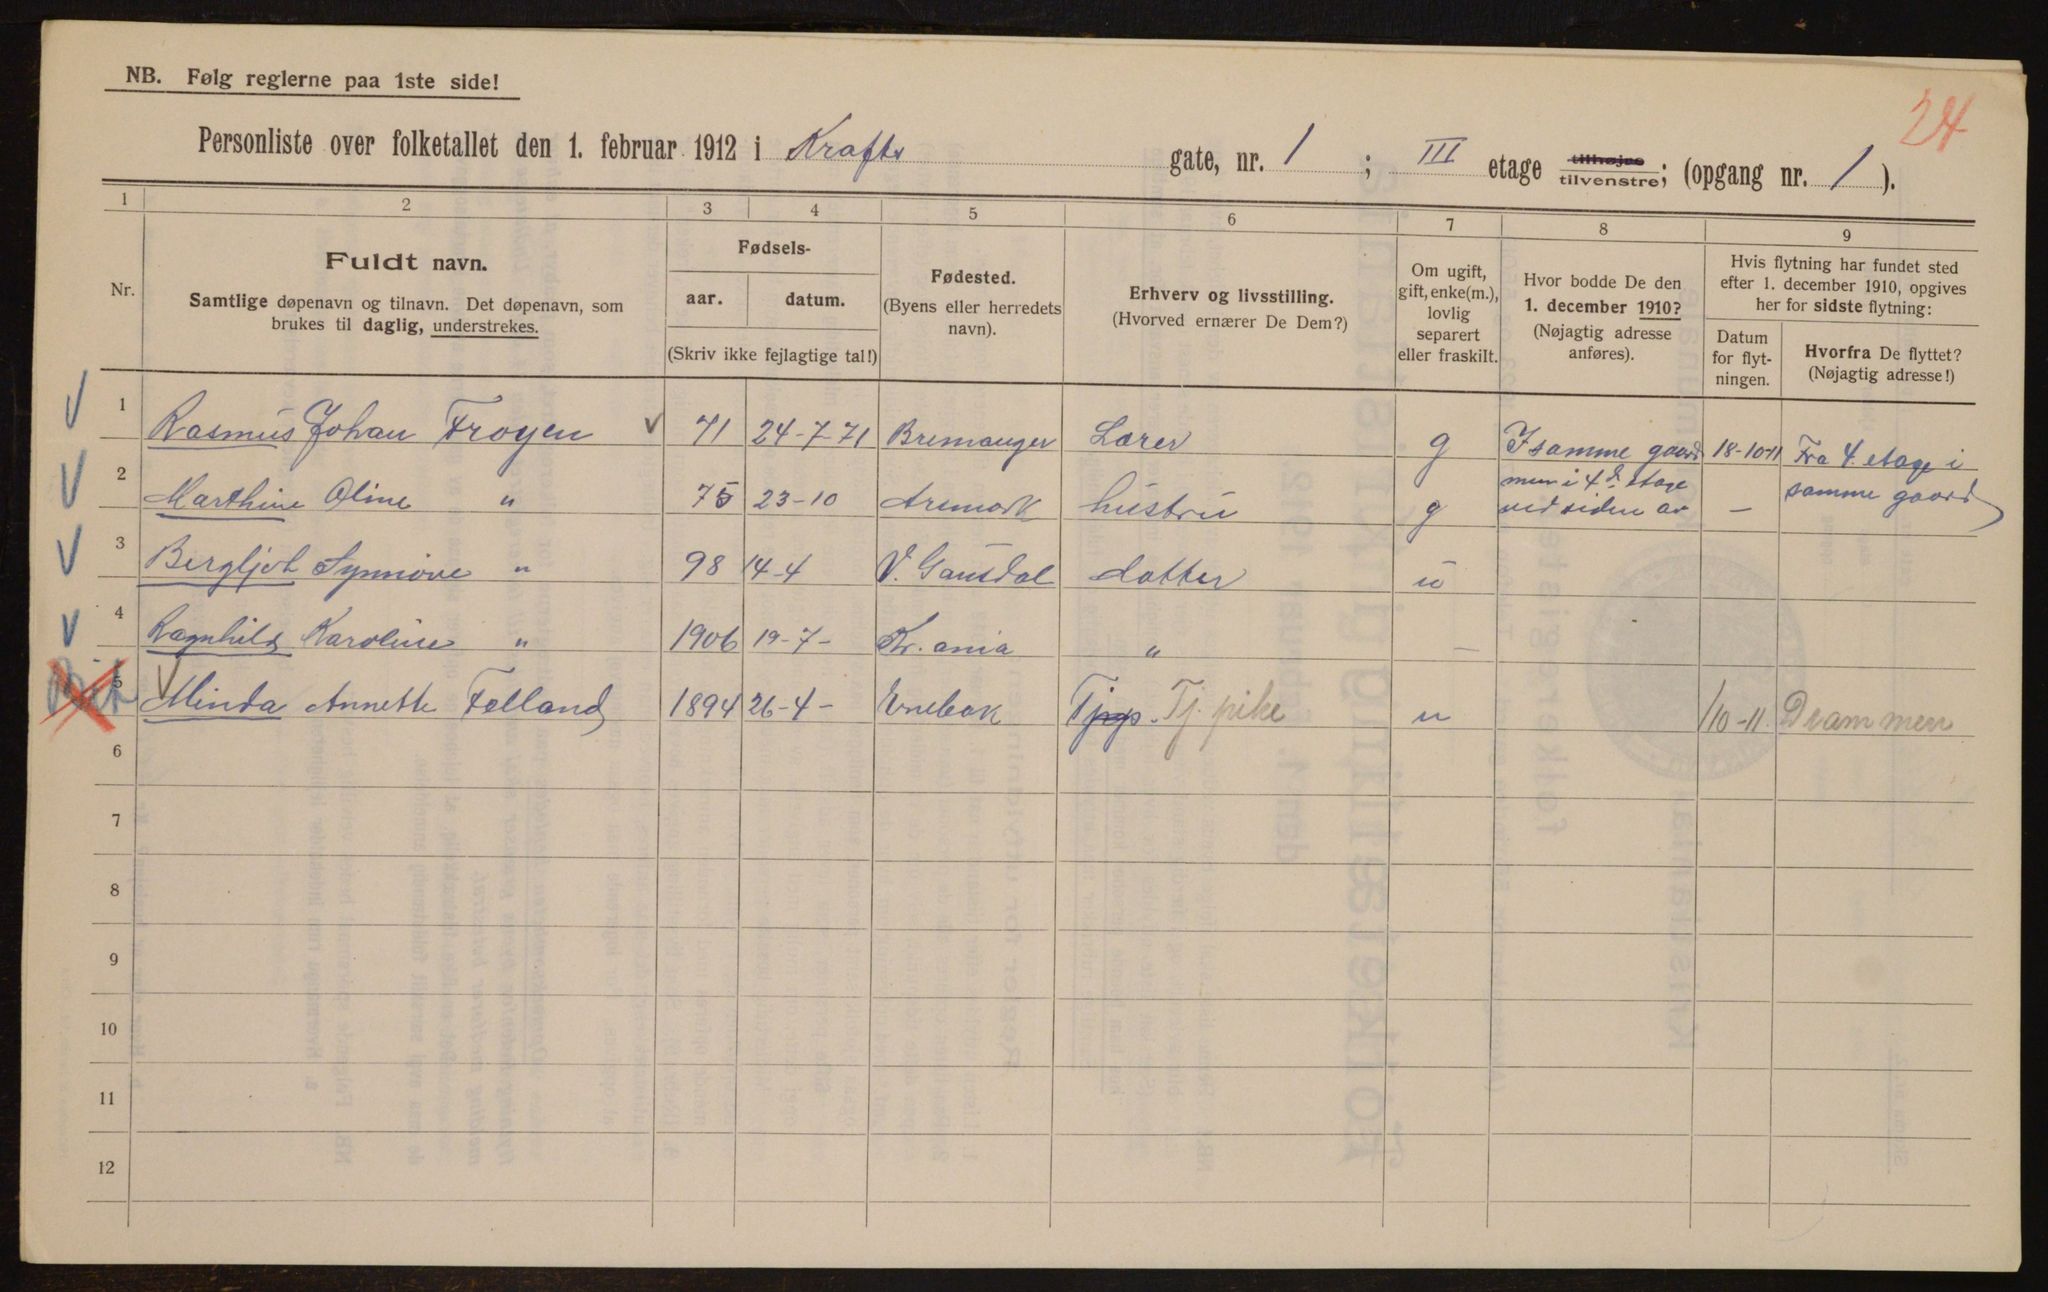 NB. Følg reglerne paa 1ste side!
24
Personliste over folketallet den 1. februar 1912 i Krafts gate, nr. 1 ; III etage tilhøjre tilvenstre; (opgang nr. 1 ).
1 2 3 4 5 6 7 8 9
Nr.
Fuldt navn.
Samtlige døpenavn og tilnavn. Det døpenavn, som
brukes til daglig, understrekes.
Fødsels-
aar. datum.
(Skriv ikke fejlagtige tal!)
Fødested.
(Byens eller herredets
navn).
Erhverv og livsstilling.
(Hvorved ernærer De Dem?)
Om ugift,
gift, enke(m.),
lovlig
separert
eller fraskilt.
Hvor bodde De den
1. december 1910?
(Nøjagtig adresse
anføres).
Hvis flytning har fundet sted
efter 1. december 1910, opgives
her for sidste flytning:
Datum
for flyt-
ningen.
Hvorfra De flyttet?
(Nøjagtig adresse!)
1 Rasmus Johan Frøyen 71 24-7-71 Bremanger Lærer g I samme gaard 18-10-11 Fra 4. etage i
2 Marthine Oline " 75 23-10 Aremark hustru g men i 4de etage ved siden av - samme gaard
3 Bergljot Synnöve " 98 14-4 V. Gausdal datter u
4 Ragnhild Karoline " 1906 19-7- Kr.ania " -
5 Minda Annette Felland 1894 26-4- Enebak Tjpg. Tj. pike u /10-11. Drammen
6
7
8
9
10
11
12